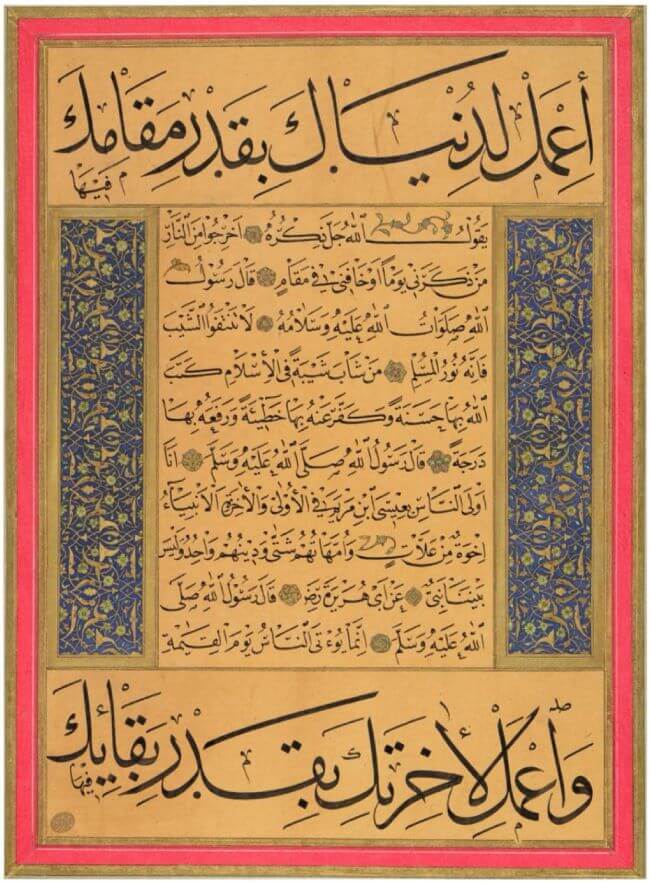 أعمل لدنياك بقدر مقامك
فيها
يقول الله جل ذكره اخرجوا من النار
من ذكرني يوما او خافني في مقام قال رسول
الله صلوات الله عليه وسلامه لا تنتفوا الشيب
فانه نور المسلم من شاب شيبة في الإسلام كتب
الله بها حسنة وكفر عنه بها خطيئة ورفعه بها
درجة قال رسول الله صلى الله عليه وسلم انا
اولى الناس بعيسى ابن مريم في الأولى والأخرة الأنبياء
اخوة من علات وامهاتهم شتى ودينهم واحد وليس
بيننا نبي عن ابي هريرة رض قال رسول الله صلى
الله عليه وسلم انما يؤتى الناس يوم القيمة
واعمل لأخرتك بقدر بقائك
فيها